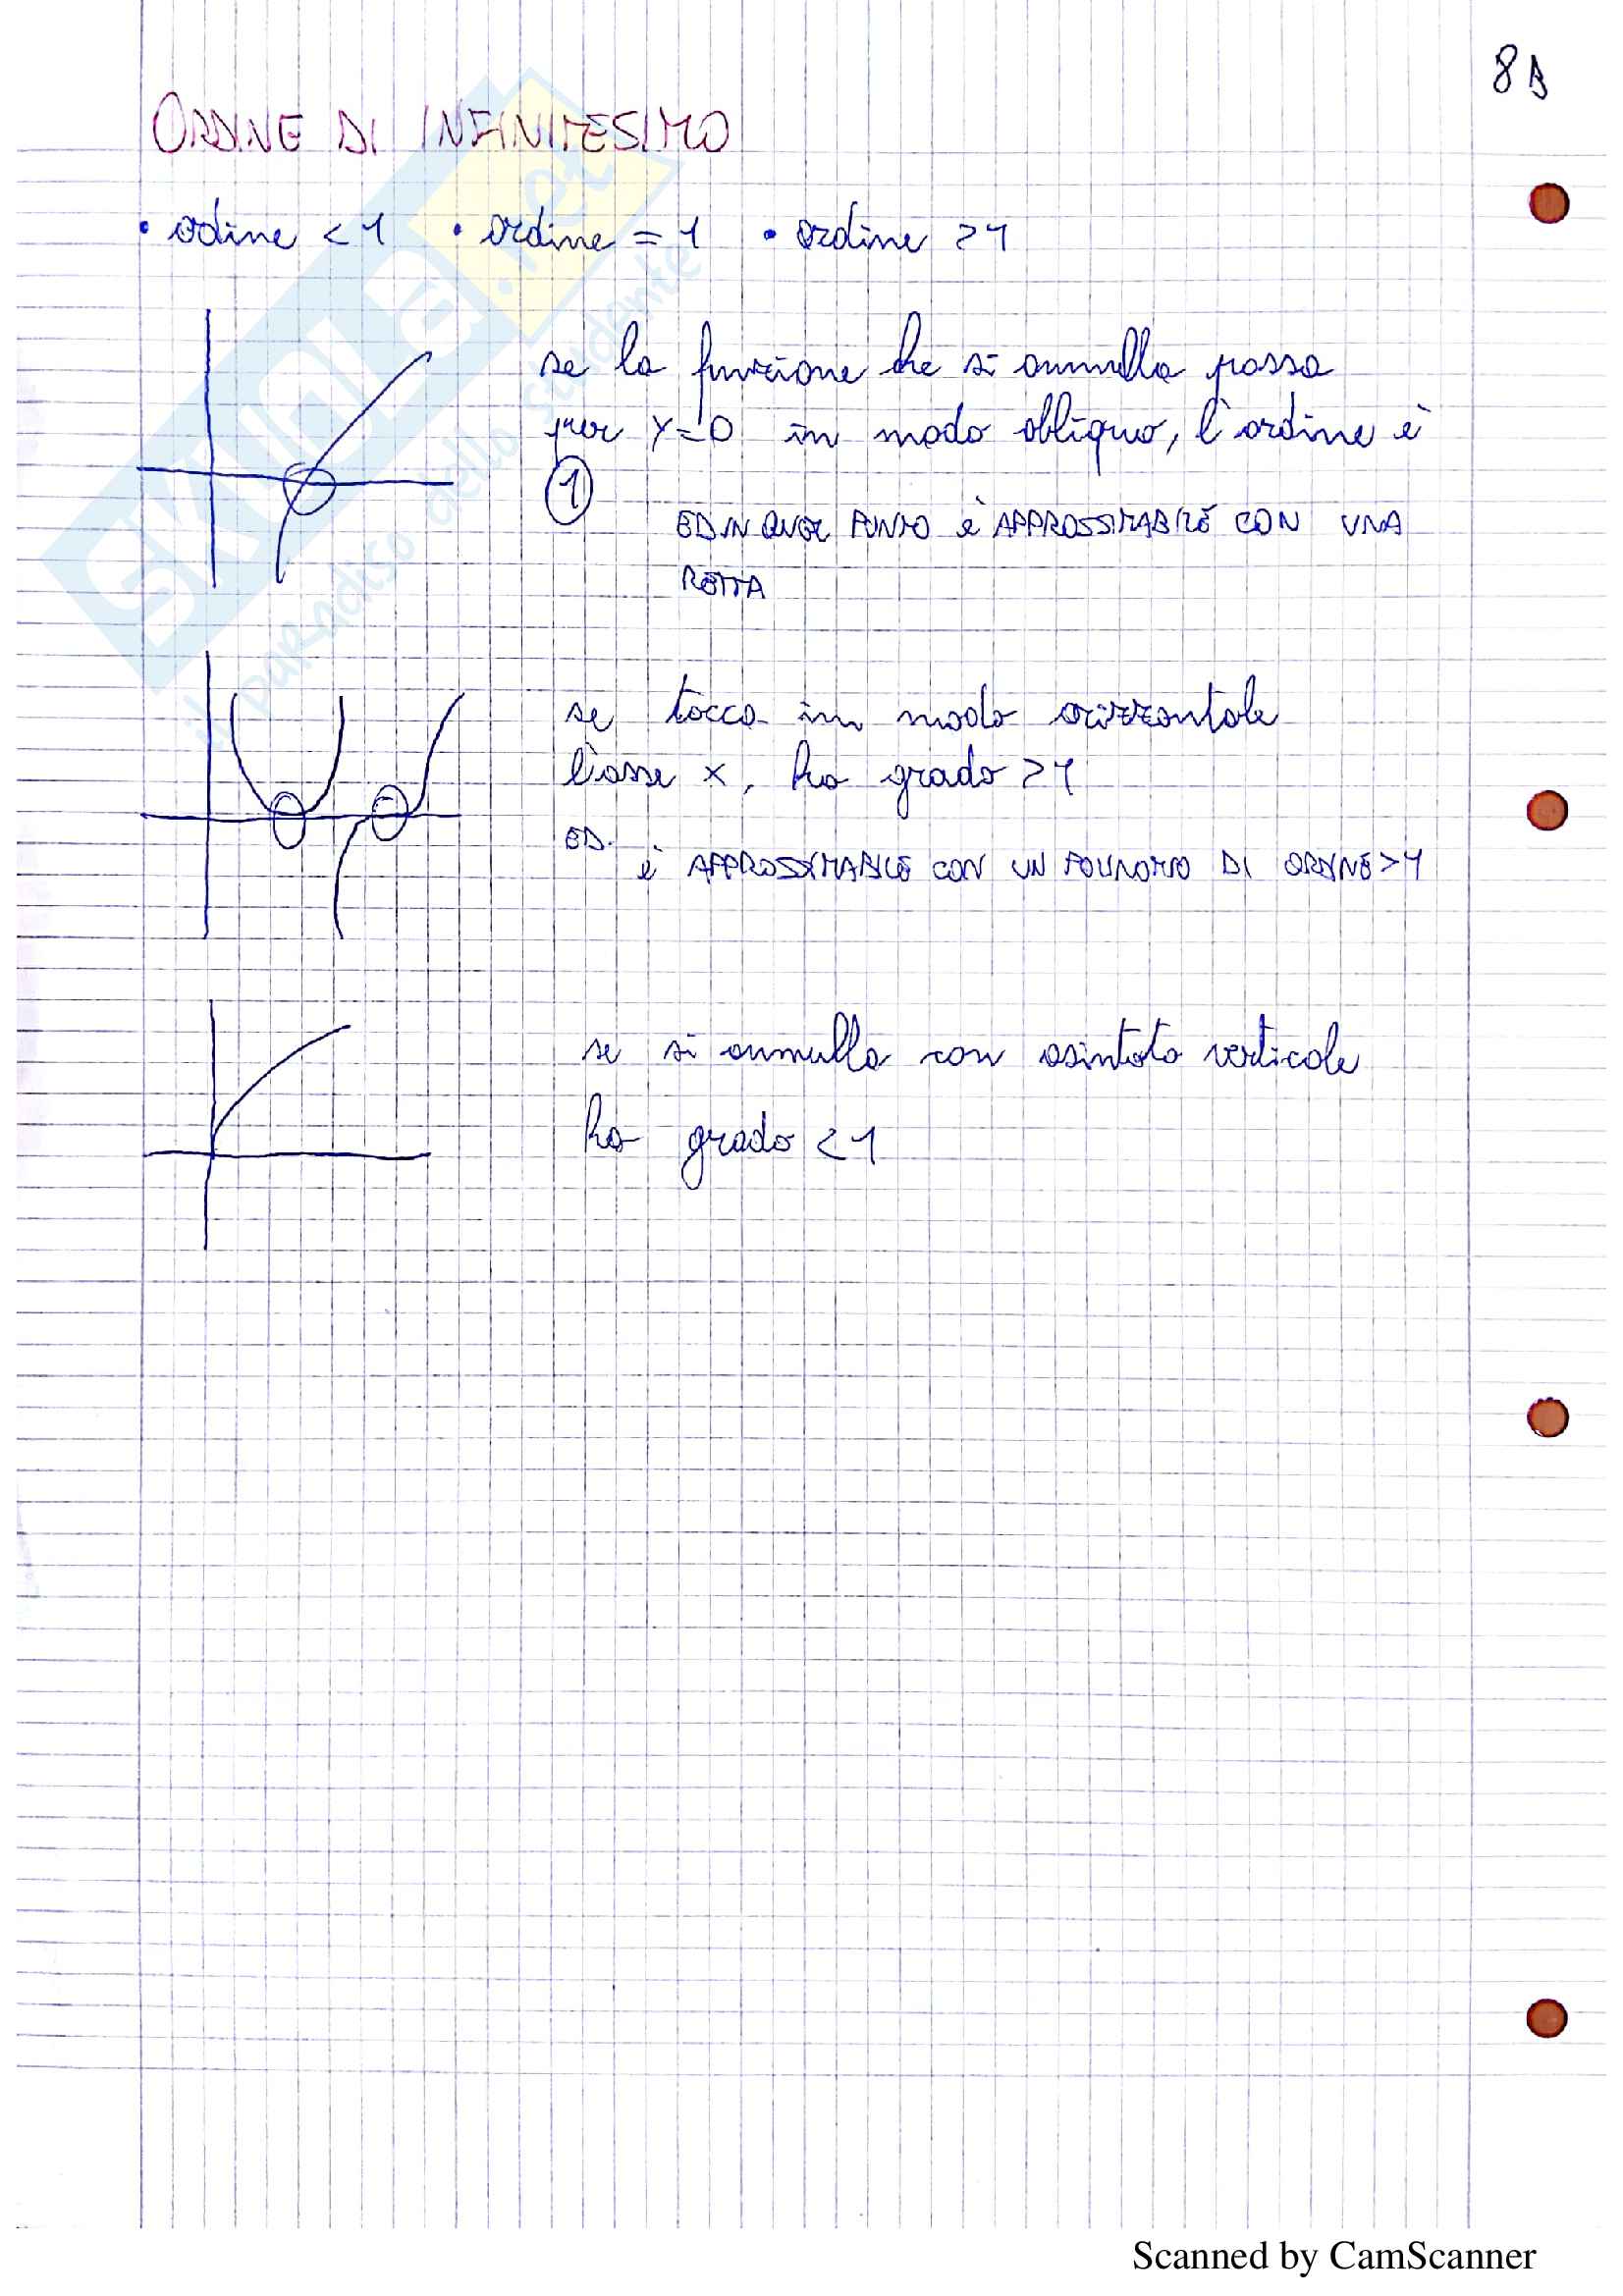 8B
ORDINE DI INFINITESIMO
• odine < 1 • ordine = 1 • ordine > 1
se la funzione che si annulla passa
per y=0 in modo obliquo, l'ordine è
1
ED IN QUEL PUNTO è APPROSSIMABILE CON UNA
RETTA
se tocca in modo orizzontale
l'asse x, ho grado > 1
ED.
è APPROSSIMABILE CON UN POLINOMIO DI ORDINE > 1
se si annulla con asintoto verticale
ho grado < 1
SKUOLA.net
il paradiso dello studente
Scanned by CamScanner